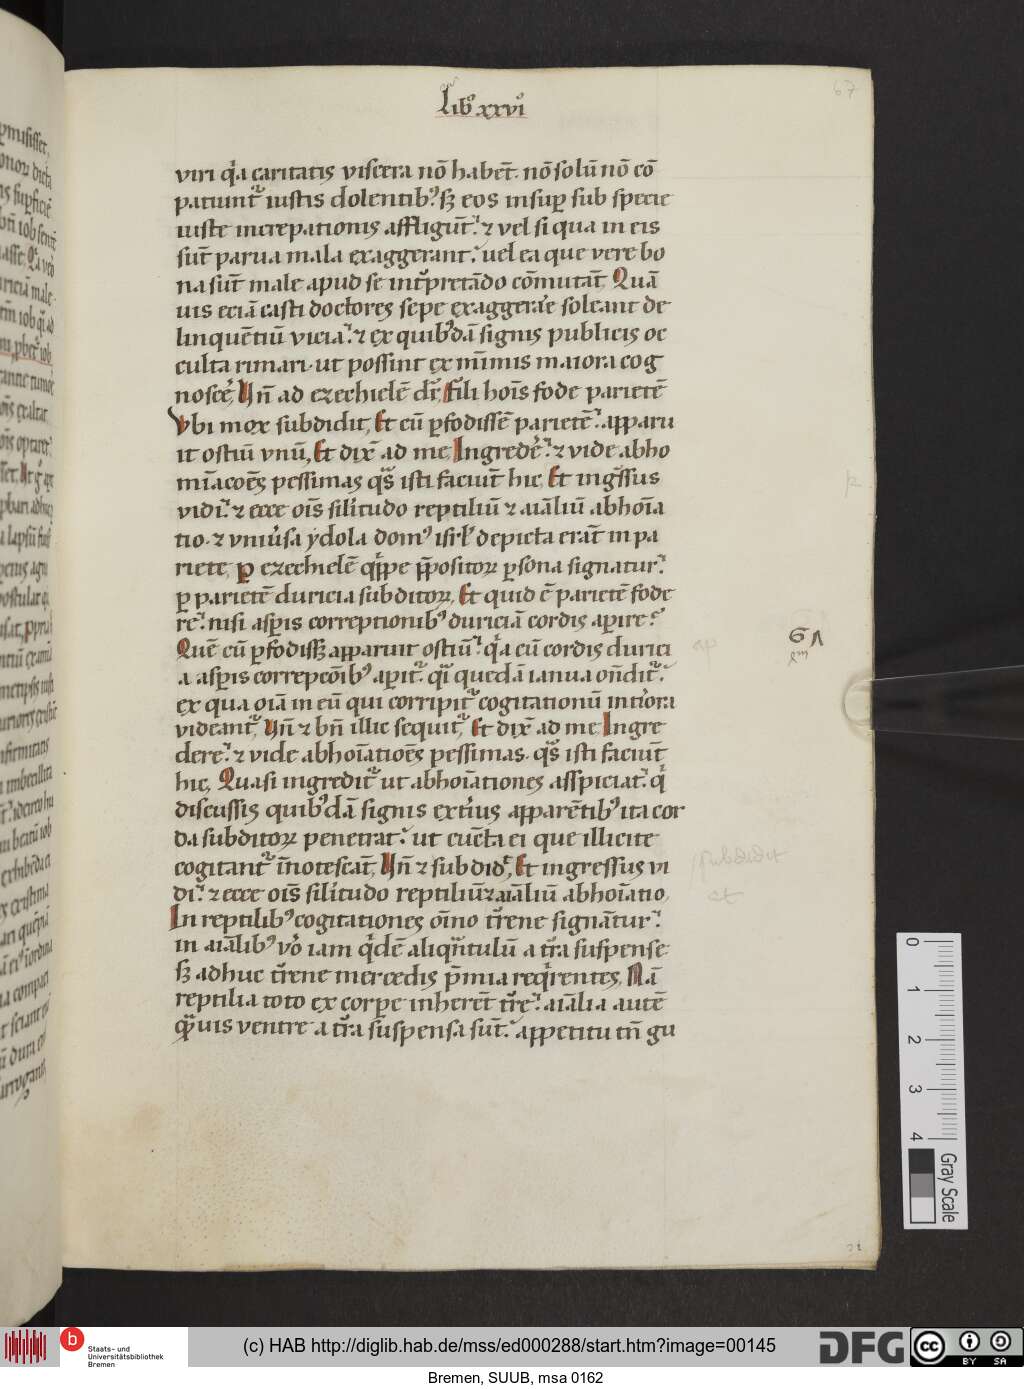 67
Lib⁹ xxvi⁹
viri q̇a caritatis viscera nō habēt. nō solū nō cō
patiunt᷑ iustis dolentib⁹. sꝫ eos insuꝑ sub specie
iuste increpationis affligūt. ⁊ vel si qua in eis
sūt parua mala exaggerant. uel ea que vere bo
na sūt male apud se int᷑pretādo cōmutāt. Quā
uis eciā casti doctores sepe exaggerare soleant de
linquētiū vicia. ⁊ ex quib⁹dā signis publicis oc
culta rimari. ut possint ex mīmis maiora cog
nosce᷑. Hn̄ ad ezechielē dr̄. Fili hoīs fode parietē
Vbi mox subdidit, Et cū ꝑfodissē parietē. apparu
it ostiū vnū, Et dix̄ ad me, Ingrede᷑. ⁊ vide abho
mīacōēs pessimas q̄s isti faciūt hic, Et ing̊ssus
vidi. ⁊ ecce oīs silitudo reptiliū ⁊ aīaliū abhoīa
tio. ⁊ vniu᷑sa ydola dom⁹ isrl̄ depicta erāt in pa
riete, P ezechielē q̇ppe p̄positoꝝ ꝑsona signatur.
ꝑ parietē duricia subditoꝝ, Et quid ē parietē fode
re. nisi asꝑis correptionib⁹ duriciā cordis aꝑire?
Quē cū ꝑfodissꝫ apparuit ostiū. q̇a cū cordis durici
a asꝑis correpcōib⁹ aꝑit᷑. q̄i quedā ianua on̄dit᷑.
ex qua oīa in eū qui corripit᷑ cogitationū int᷑iora
videant᷑, Hn̄ ⁊ bn̄ illic sequit᷑, Et dix̄ ad me Ingre
dere. ⁊ vide abhoīatioēs pessimas. q̄s isti faciūt
hic, Quasi ingredit᷑ ut abhoīationes asspiciat. q̇
discussis quib⁹dā signis ext᷑ius apparētib⁹ ita cor
da subditoꝝ penetrat. ut cūcta ei que illicite
cogitant᷑ īnotescāt, Hn̄ ⁊ subdid᷑, Et ingressus vi
di. ⁊ ecce oīs silitudo reptiliū ⁊ aīaliū abhoīatio,
In reptilib⁹ cogitationes oīno t᷑rene signātur.
in aīalib⁹ vo᷑ iam q̇dē aliq̄ntulū a t᷑ra suspense
sꝫ adhuc t᷑rene mercedis p̄mia req̇rentes, Nā
reptilia toto ex corꝑe inherēt t᷑re. aīalia autē
q̄uis ventre a t᷑ra suspensa sūt. appetitu tn̄ gu
0
1
2
3
4
Gray Scale
b
Staats- und
Universitätsbibliothek
Bremen
(c) HAB http://diglib.hab.de/mss/ed000288/start.htm?image=00145
DFG
cc
BY SA
Bremen, SUUB, msa 0162